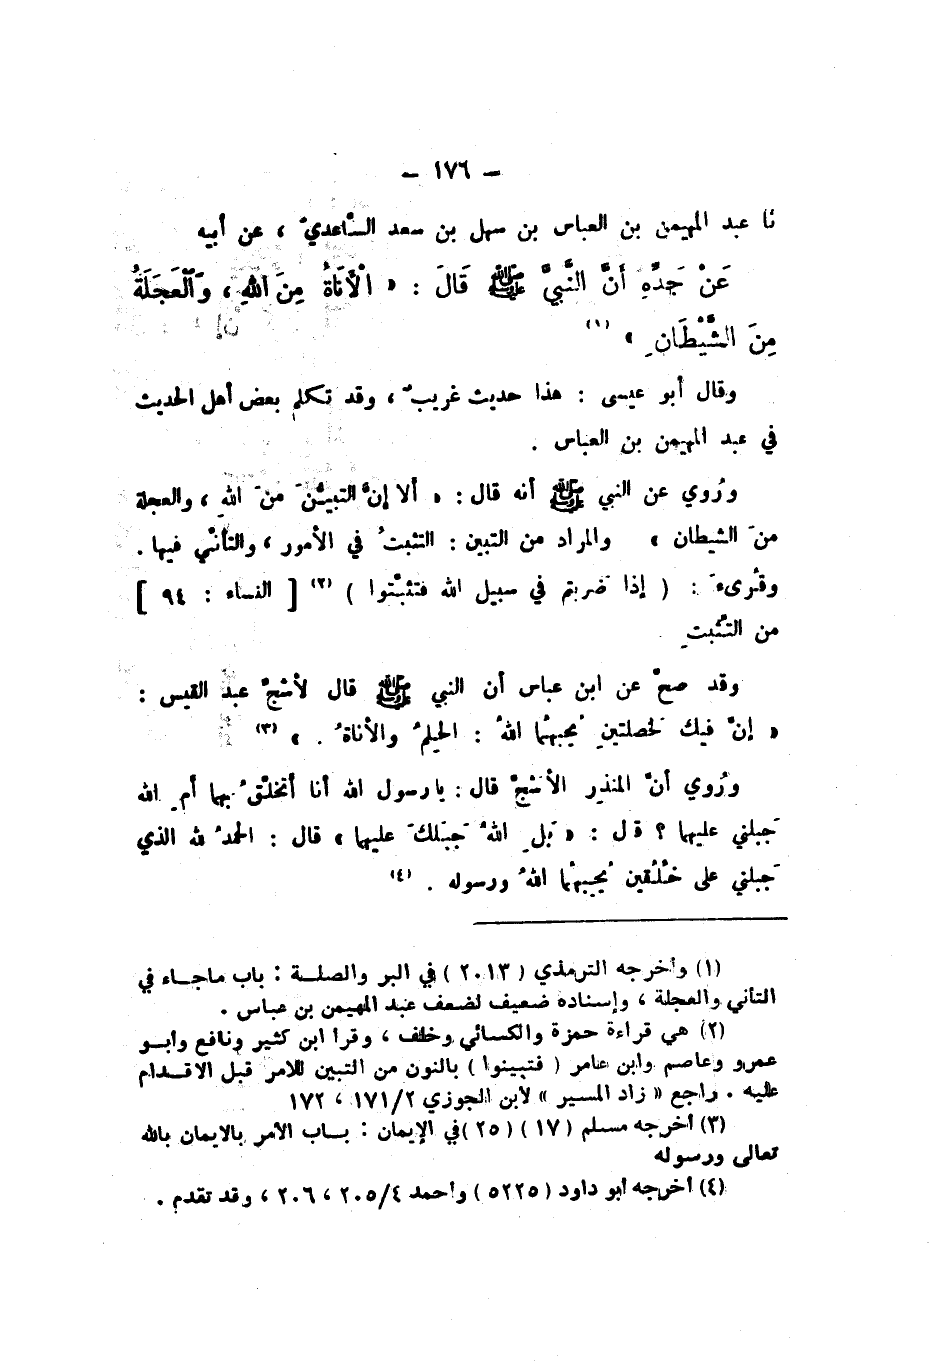 – ١٧٦ –
نَا عبد المهيمن بن العباس بن سهل بن سعد السَّاعديُّ ، عن أبيه
عَنْ جَدِّهِ أَنَّ النَّبِيَّ ﷺ قَالَ : « الْأَنَاةُ مِنَ اللهِ ، وَالْعَجَلَةُ
مِنَ الشَّيْطَانِ » (١)
وقال أبو عيسى : هذا حديث غريبٌ ، وقد تكلم بعض أهل الحديث
في عبد المهيمن بن العباس .
ورُوي عن النبي ﷺ أنه قال : « ألا إنَّ التبيُّنَ منَ اللهِ ، والعجلة
منَ الشيطان » والمراد من التبين : التثبتُ في الأمور ، والتأنّي فيها .
وقُرىءَ : ( إذا ضَربتم في سبيل الله فتثبَّتوا ) (٢) [ النساء : ٩٤ ]
من التَّثبتِ .
وقد صحَّ عن ابن عباس أن النبي ﷺ قال لأشجِّ عبد القيس :
« إنَّ فيك لَخصلتينِ يُحبهُما اللهُ : الحِلمُ والأناةُ . » (٣)
ورُوي أنَّ المنذِر الأشجَّ قال : يا رسول الله أنا أتخلَّقُ بهما أمِ الله
جَبلني عليهما ؟ قال : « بَلِ اللهُ جَبَلكَ عليهما » قال : الحمدُ لله الذي
جَبلني على خُلُقين يُحبهُما اللهُ ورسوله . (٤)
(١) وأخرجه الترمذي ( ٢٠١٣ ) في البر والصلـة : باب ماجـاء في
التأني والعجلة ، وإسناده ضعيف لضعف عبد المهيمن بن عباس .
(٢) هي قراءة حمزة والكسائي وخلف ، وقرأ ابن كثير ونافع وأبـو
عمرو وعاصم وابن عامر ( فتبينوا ) بالنون من التبين للأمر قبل الاقـدام
عليه . راجع « زاد المسير » لابن الجوزي ١٧١/٢ ، ١٧٢
(٣) أخرجه مسلم ( ١٧ ) ( ٢٥ ) في الإيمان : بـاب الأمر بالايمان بالله
تعالى ورسوله
(٤) أخرجه أبو داود ( ٥٢٢٥ ) وأحمد ٢٠٥/٤ ، ٢٠٦ ، وقد تقدم .